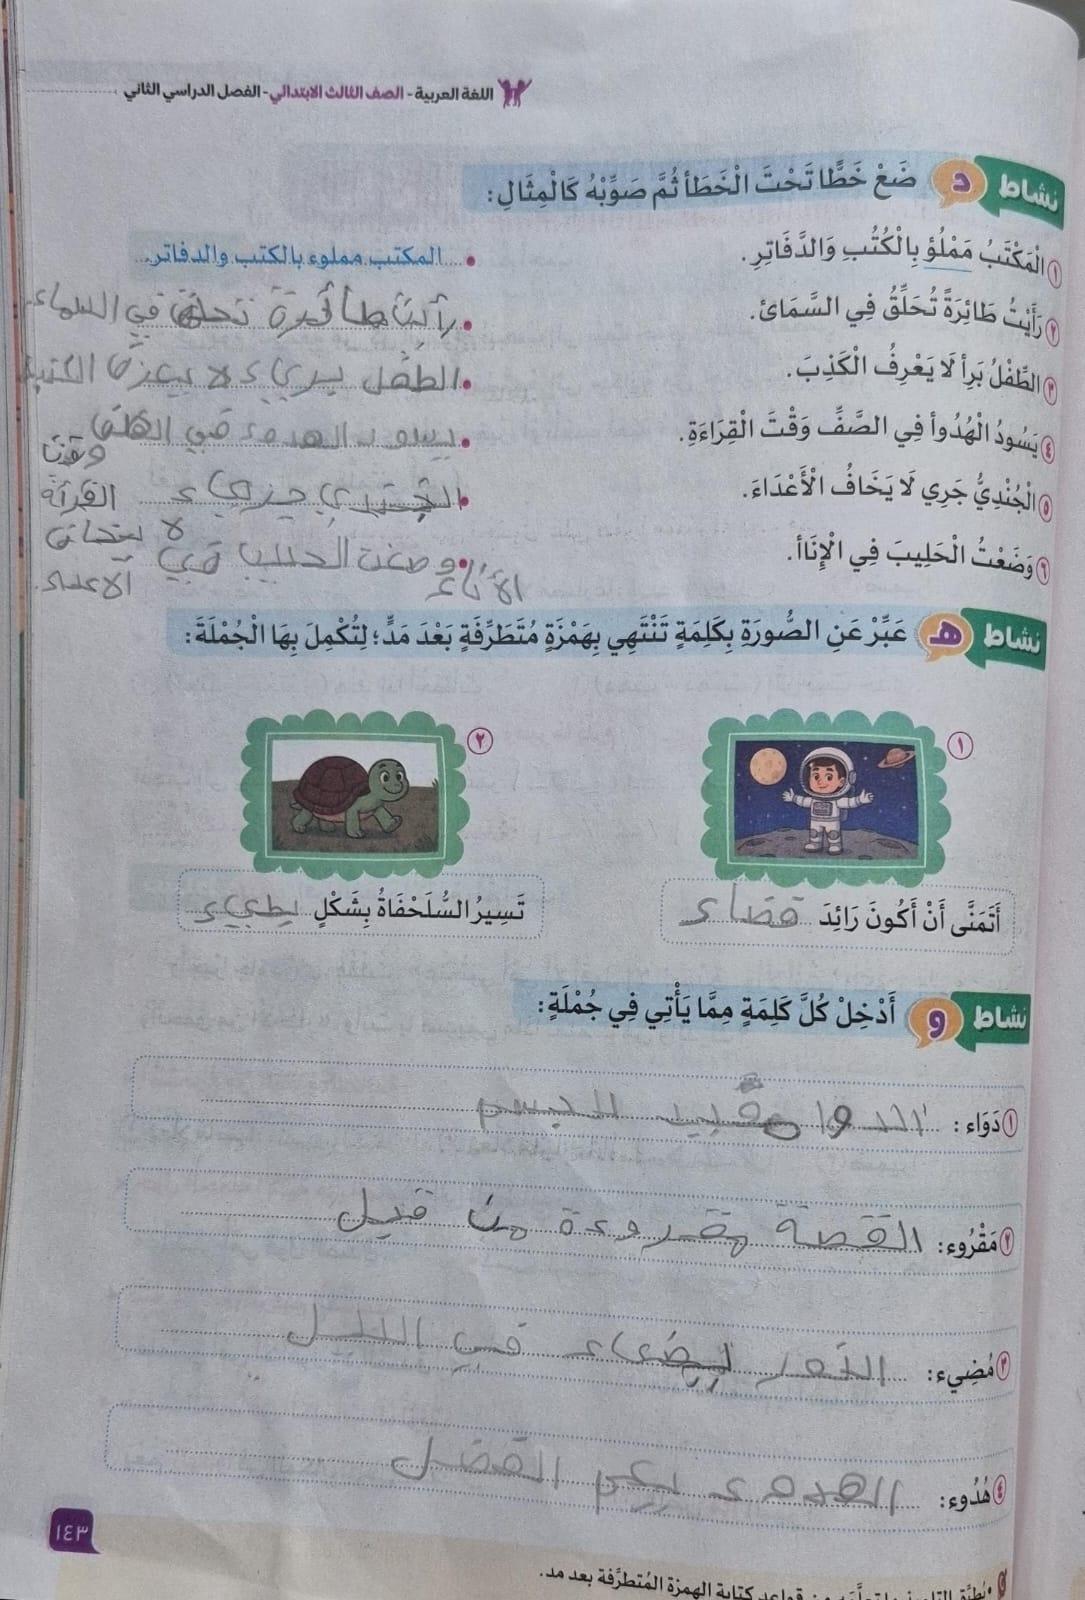 اللغة العربية - الصف الثالث الابتدائي - الفصل الدراسي الثاني
نشاط د ضَعْ خَطًّا تَحْتَ الْخَطَأ ثُمَّ صَوِّبْهُ كَالْمِثَالِ:
١ الْمَكْتَبُ مَمْلُؤ بِالْكُتُبِ وَالدَّفَاتِرِ.
المكتب مملوء بالكتب والدفاتر.
٢ رَأَيْتُ طَائِرَةً تُحَلِّقُ فِي السَّمَائ.
في السماء
٣ الطِّفْلُ بَرِأ لَا يَعْرِفُ الْكَذِبَ.
الطفل بريء لا يعرف
٤ يَسُودُ الْهُدُوأ فِي الصَّفِّ وَقْتَ الْقِرَاءَةِ.
الهدوء في وقت
٥ الْجُنْدِيُّ جَرِي لَا يَخَافُ الْأَعْدَاءَ.
لا يخاف الاعداء.
٦ وَضَعْتُ الْحَلِيبَ فِي الْإِنَاأ.
وضعت الحليب في الأناء
نشاط هـ عَبِّرْ عَنِ الصُّورَةِ بِكَلِمَةٍ تَنْتَهِي بِهَمْزَةٍ مُتَطَرِّفَةٍ بَعْدَ مَدٍّ؛ لِتُكْمِلَ بِهَا الْجُمْلَةَ:
١
٢
أَتَمَنَّى أَنْ أَكُونَ رَائِدَ فضاء
تَسِيرُ السُّلَحْفَاةُ بِشَكْلٍ بطيء
نشاط و أَدْخِلْ كُلَّ كَلِمَةٍ مِمَّا يَأْتِي فِي جُمْلَةٍ:
١ دَوَاء:
٢ مَقْرُوء: القصة مقروءة من قبل
٣ مُضِيء: يضيء في الليل
٤ هُدُوء: الهدوء يعم الفصل
١٤٣
• يُطبِّق التلميذ ما تعلَّمه من قواعد كتابة الهمزة المُتطرِّفة بعد مد.